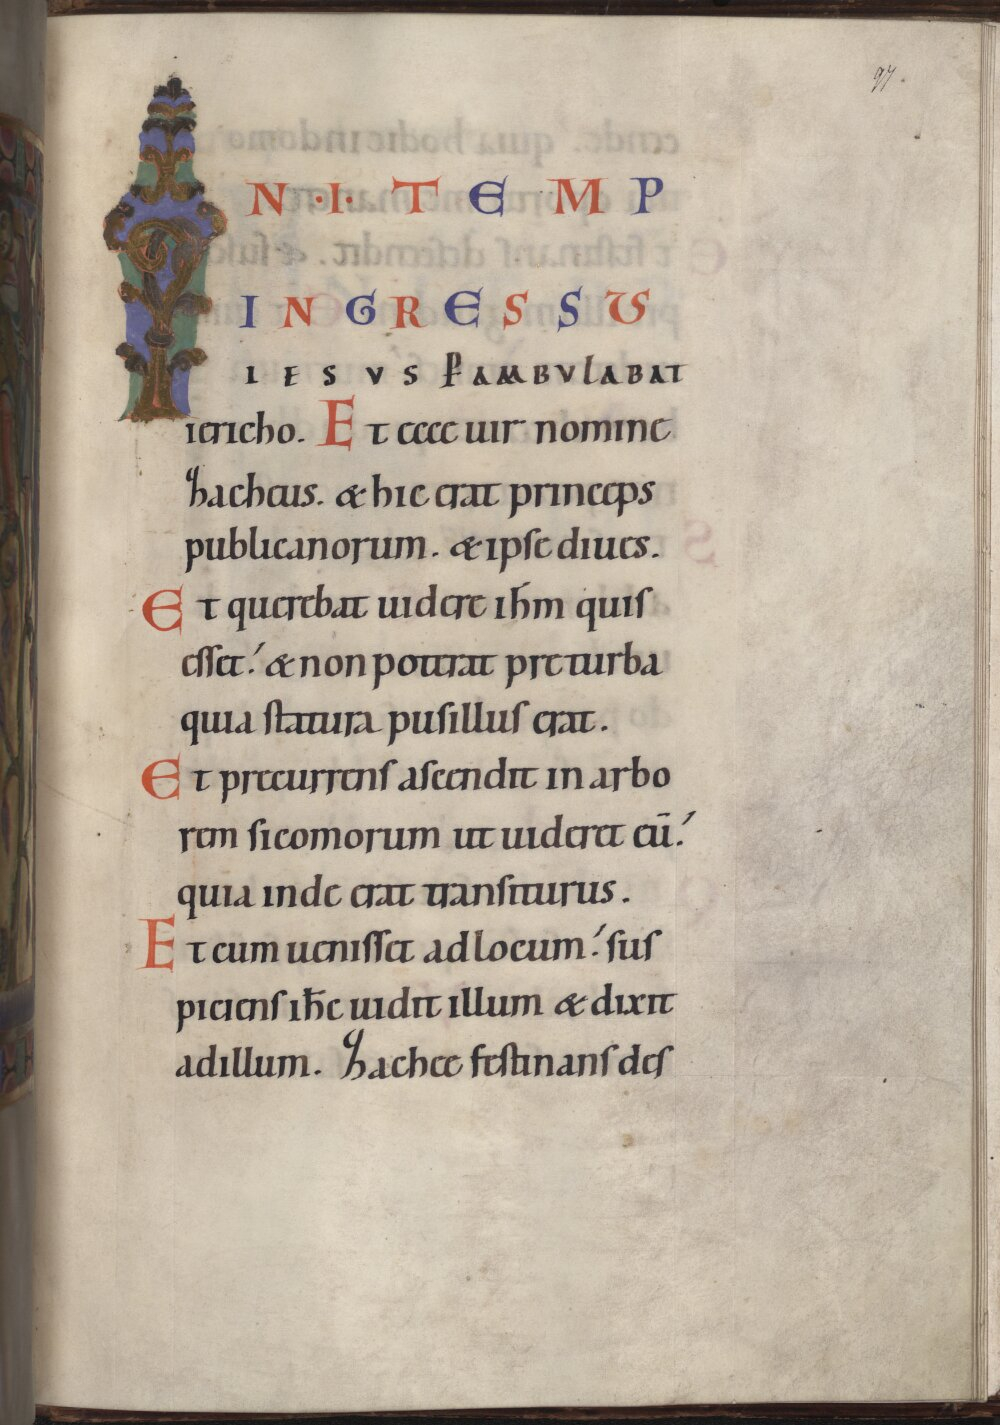 97.
IN·I·TEMP
INGRESSUS
IESVS P̲AMBVLABAT
iericho. Et ecce uir nomine
zacheus. & hic erat princeps
publicanorum. & ipse diues.
Et querebat uidere ih̅m quis
esset. & non poterat pre turba
quia statura pusillus erat.
Et precurrens ascendit in arbo
rem sicomorum ut uideret eū.
quia inde erat transiturus.
Et cum uenisset ad locum. sus
piciens ih̅c uidit illum & dixit
ad illum. Zachee festinans des